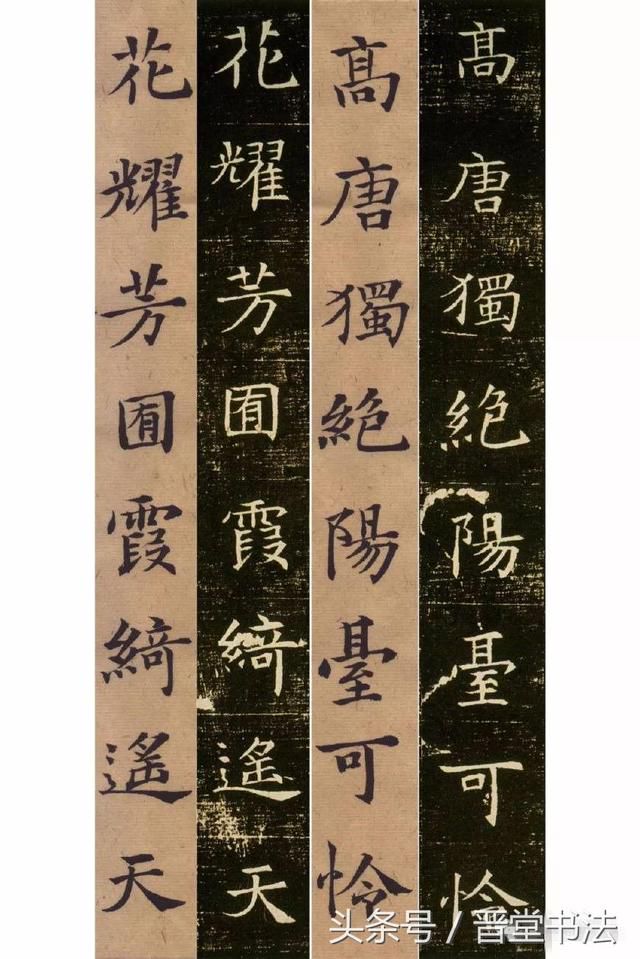 高唐獨絕陽臺可怜
高唐獨絕陽臺可怜
花耀芳囿霞綺遙天
花耀芳囿霞綺遙天
头条号／晋堂书法